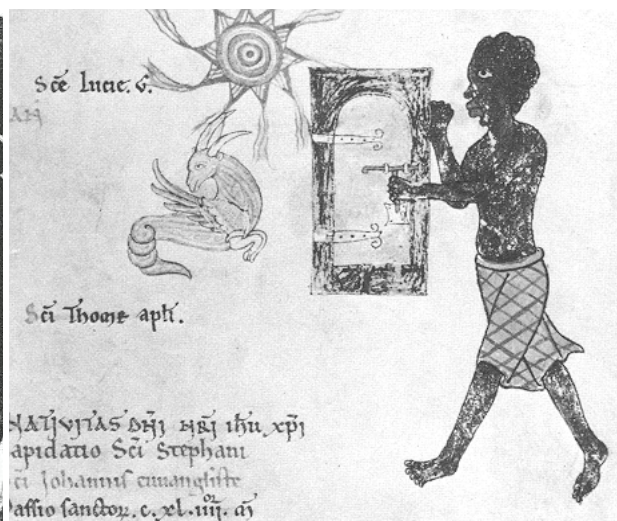 Scē Lucie. v.
Scī Thome apłi.
NATIVITAS DN̄I NR̄I ihū xp̄i
apidatio Scī Stephani
cī Johannis euuangliste
assio sanctoȝ. c. xl. iiii.